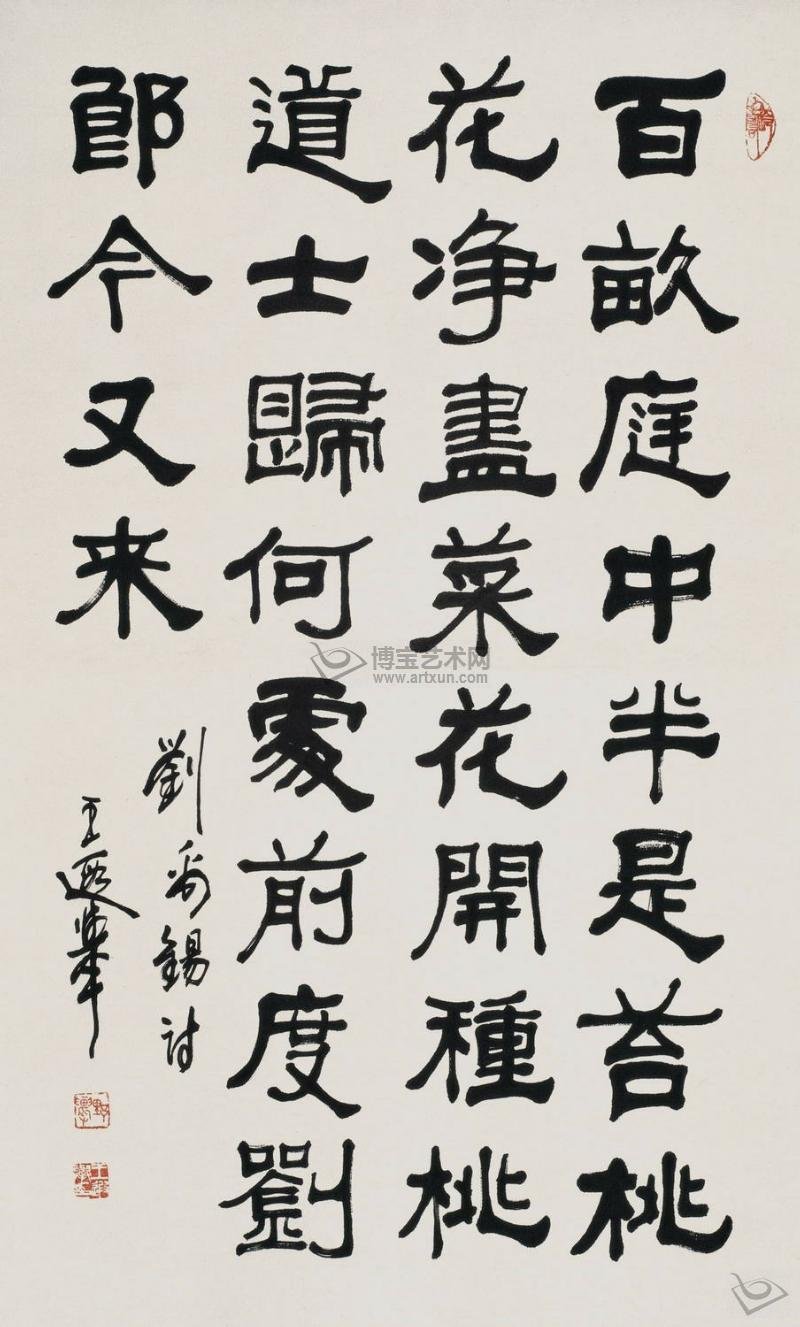 百畝庭中半是苔桃
花净盡菜花開種桃
道士歸何處前度劉
郎今又来
劉禹錫詩
王遐舉
博宝艺术网
www.artxun.com